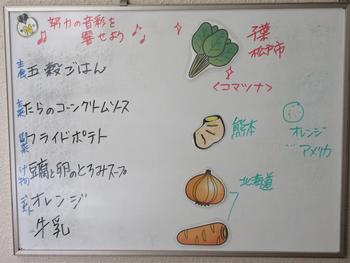 努力の音彩を
響せよう
主食 五穀ごはん
主菜 たらのコーンクリームソース
副菜 フライドポテト
汁物 豆腐と卵のとろみスープ
オレンジ
牛乳
千葉
松戸市
<コマツナ>
熊本
オレンジ
アメリカ
北海道